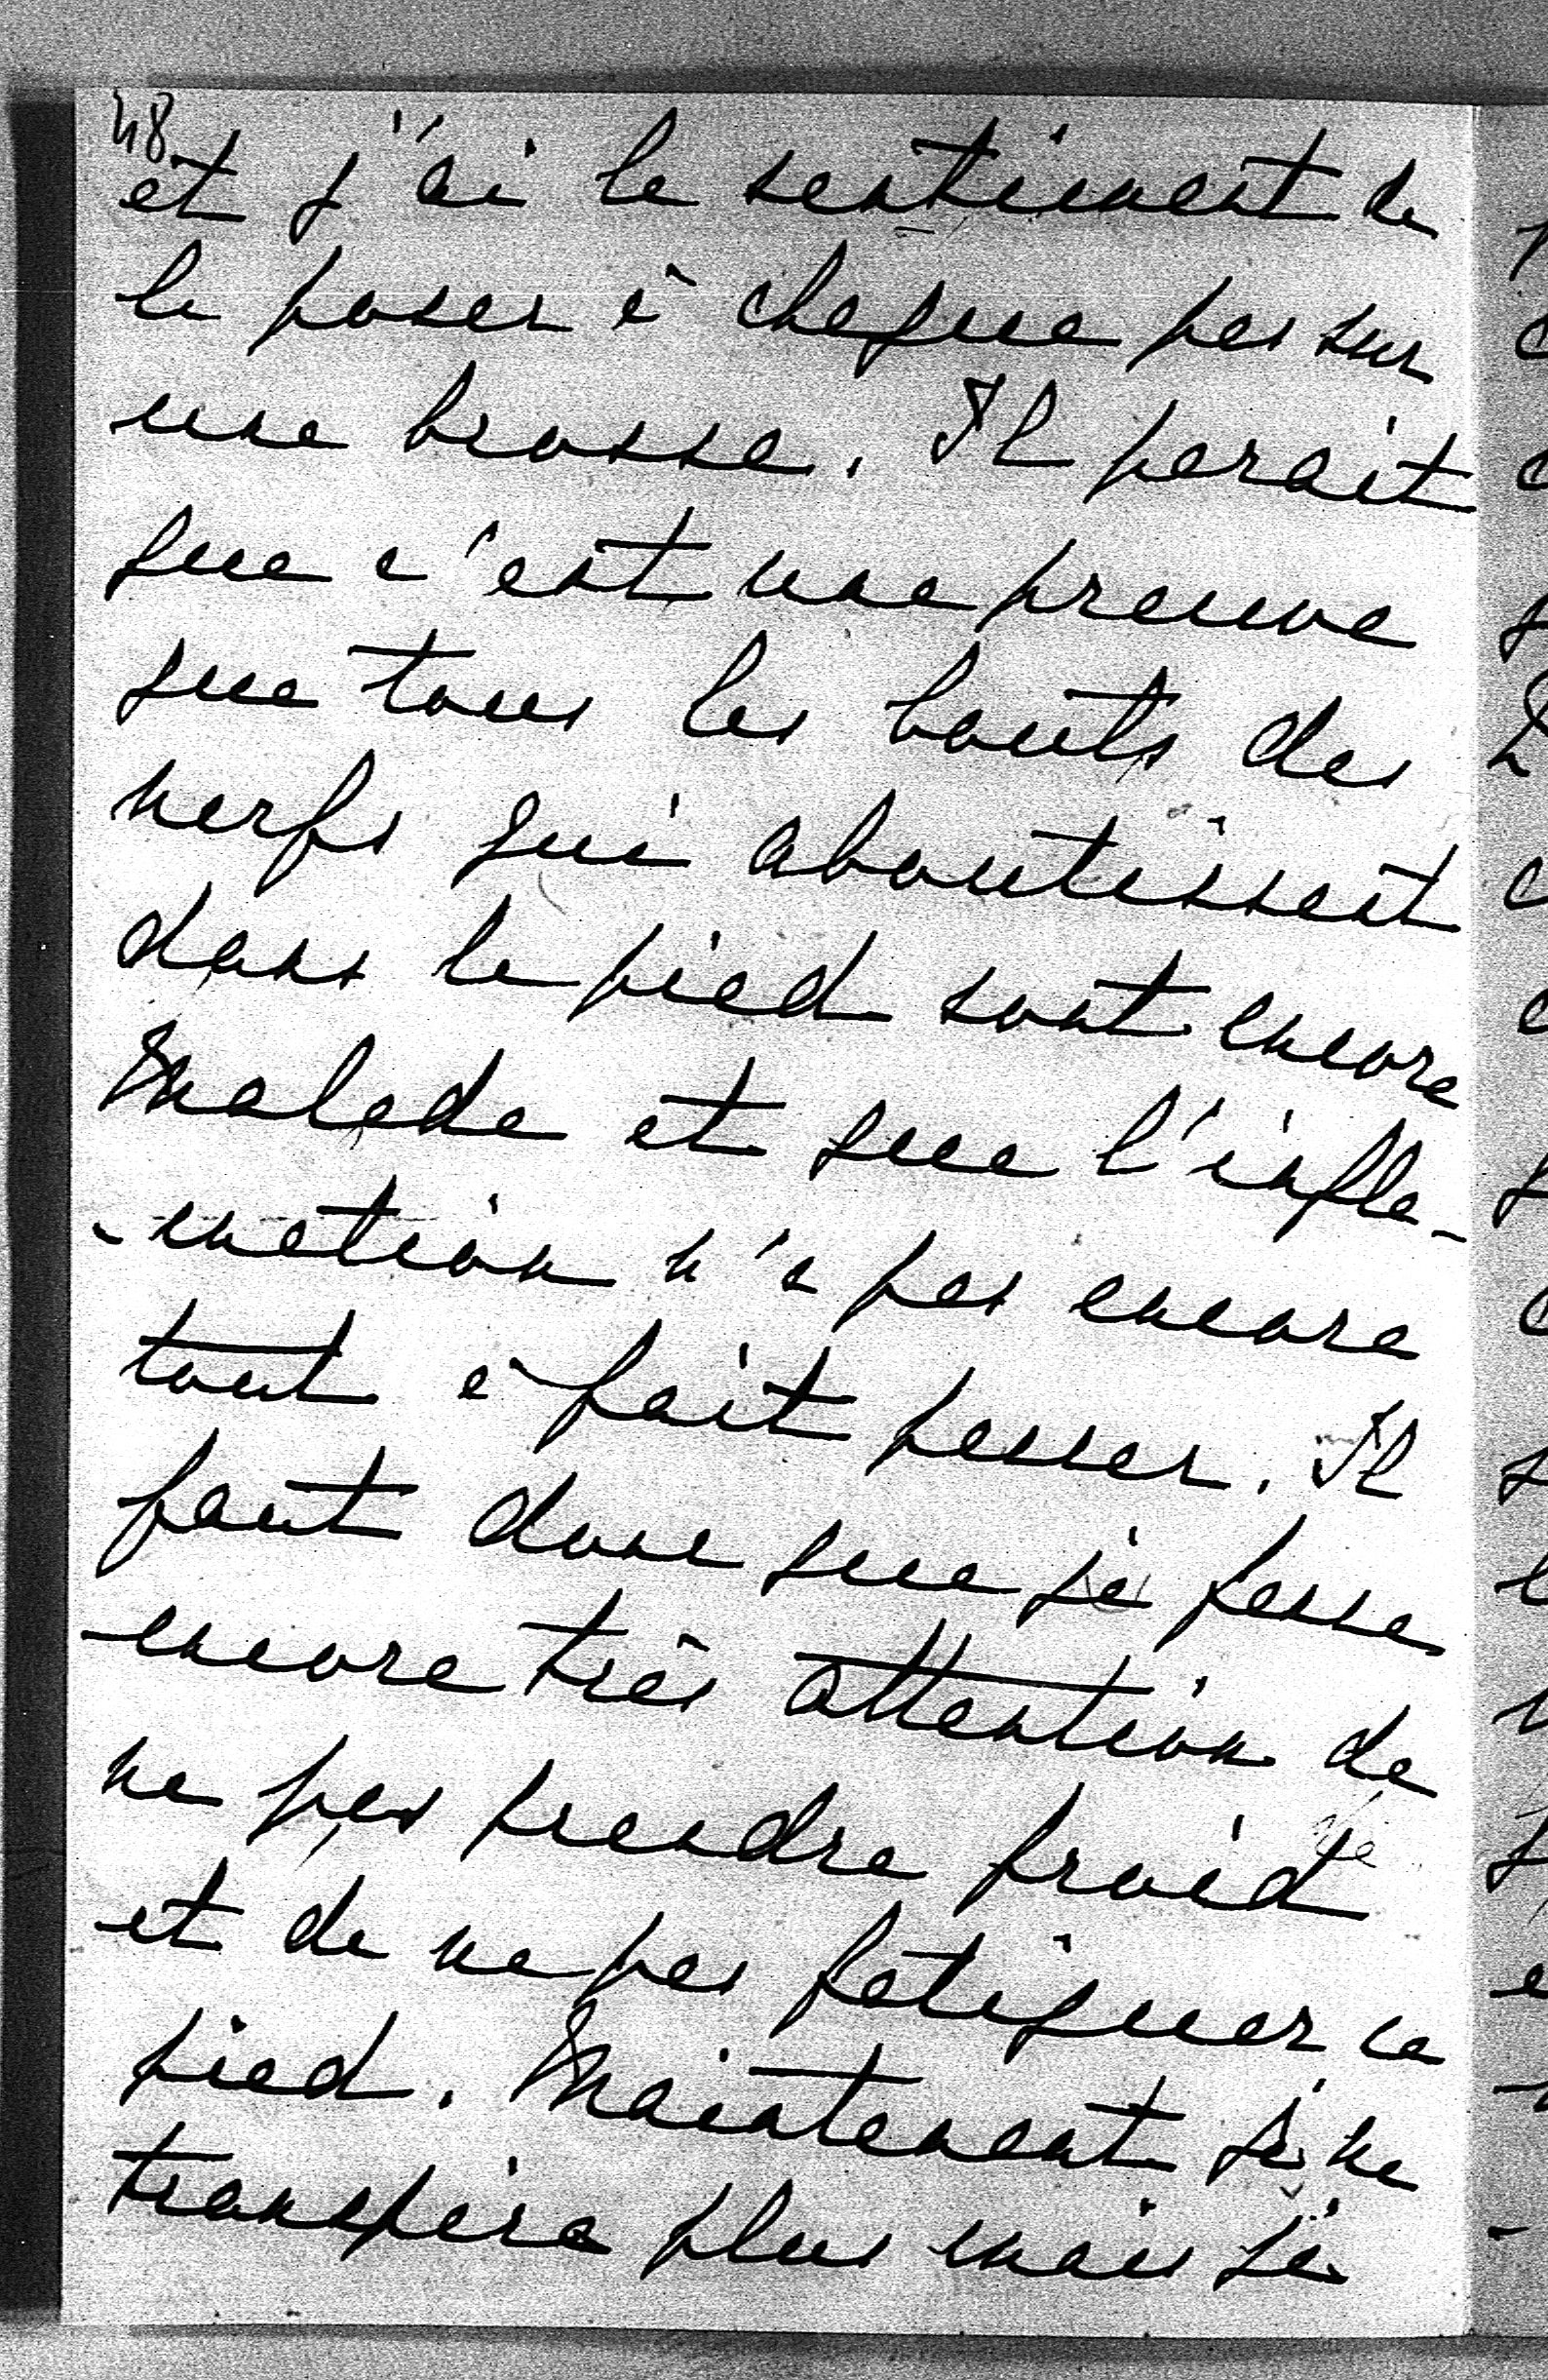 48
et j'ai le sentiment de
le poser à chaque pas sur
une brosse. Il parait
que c'est une preuve
que tous les bouts des
nerfs qui aboutissent
dans le pied sont encore
malade et que l'infla-
-mation n'a pas encore
tout à fait passer. Il
faut donc que je fasse
encore très attention de
ne pas prendre froid
et de ne pas fatiguer ce
pied. Maintenant je ne
transpire plus mais je